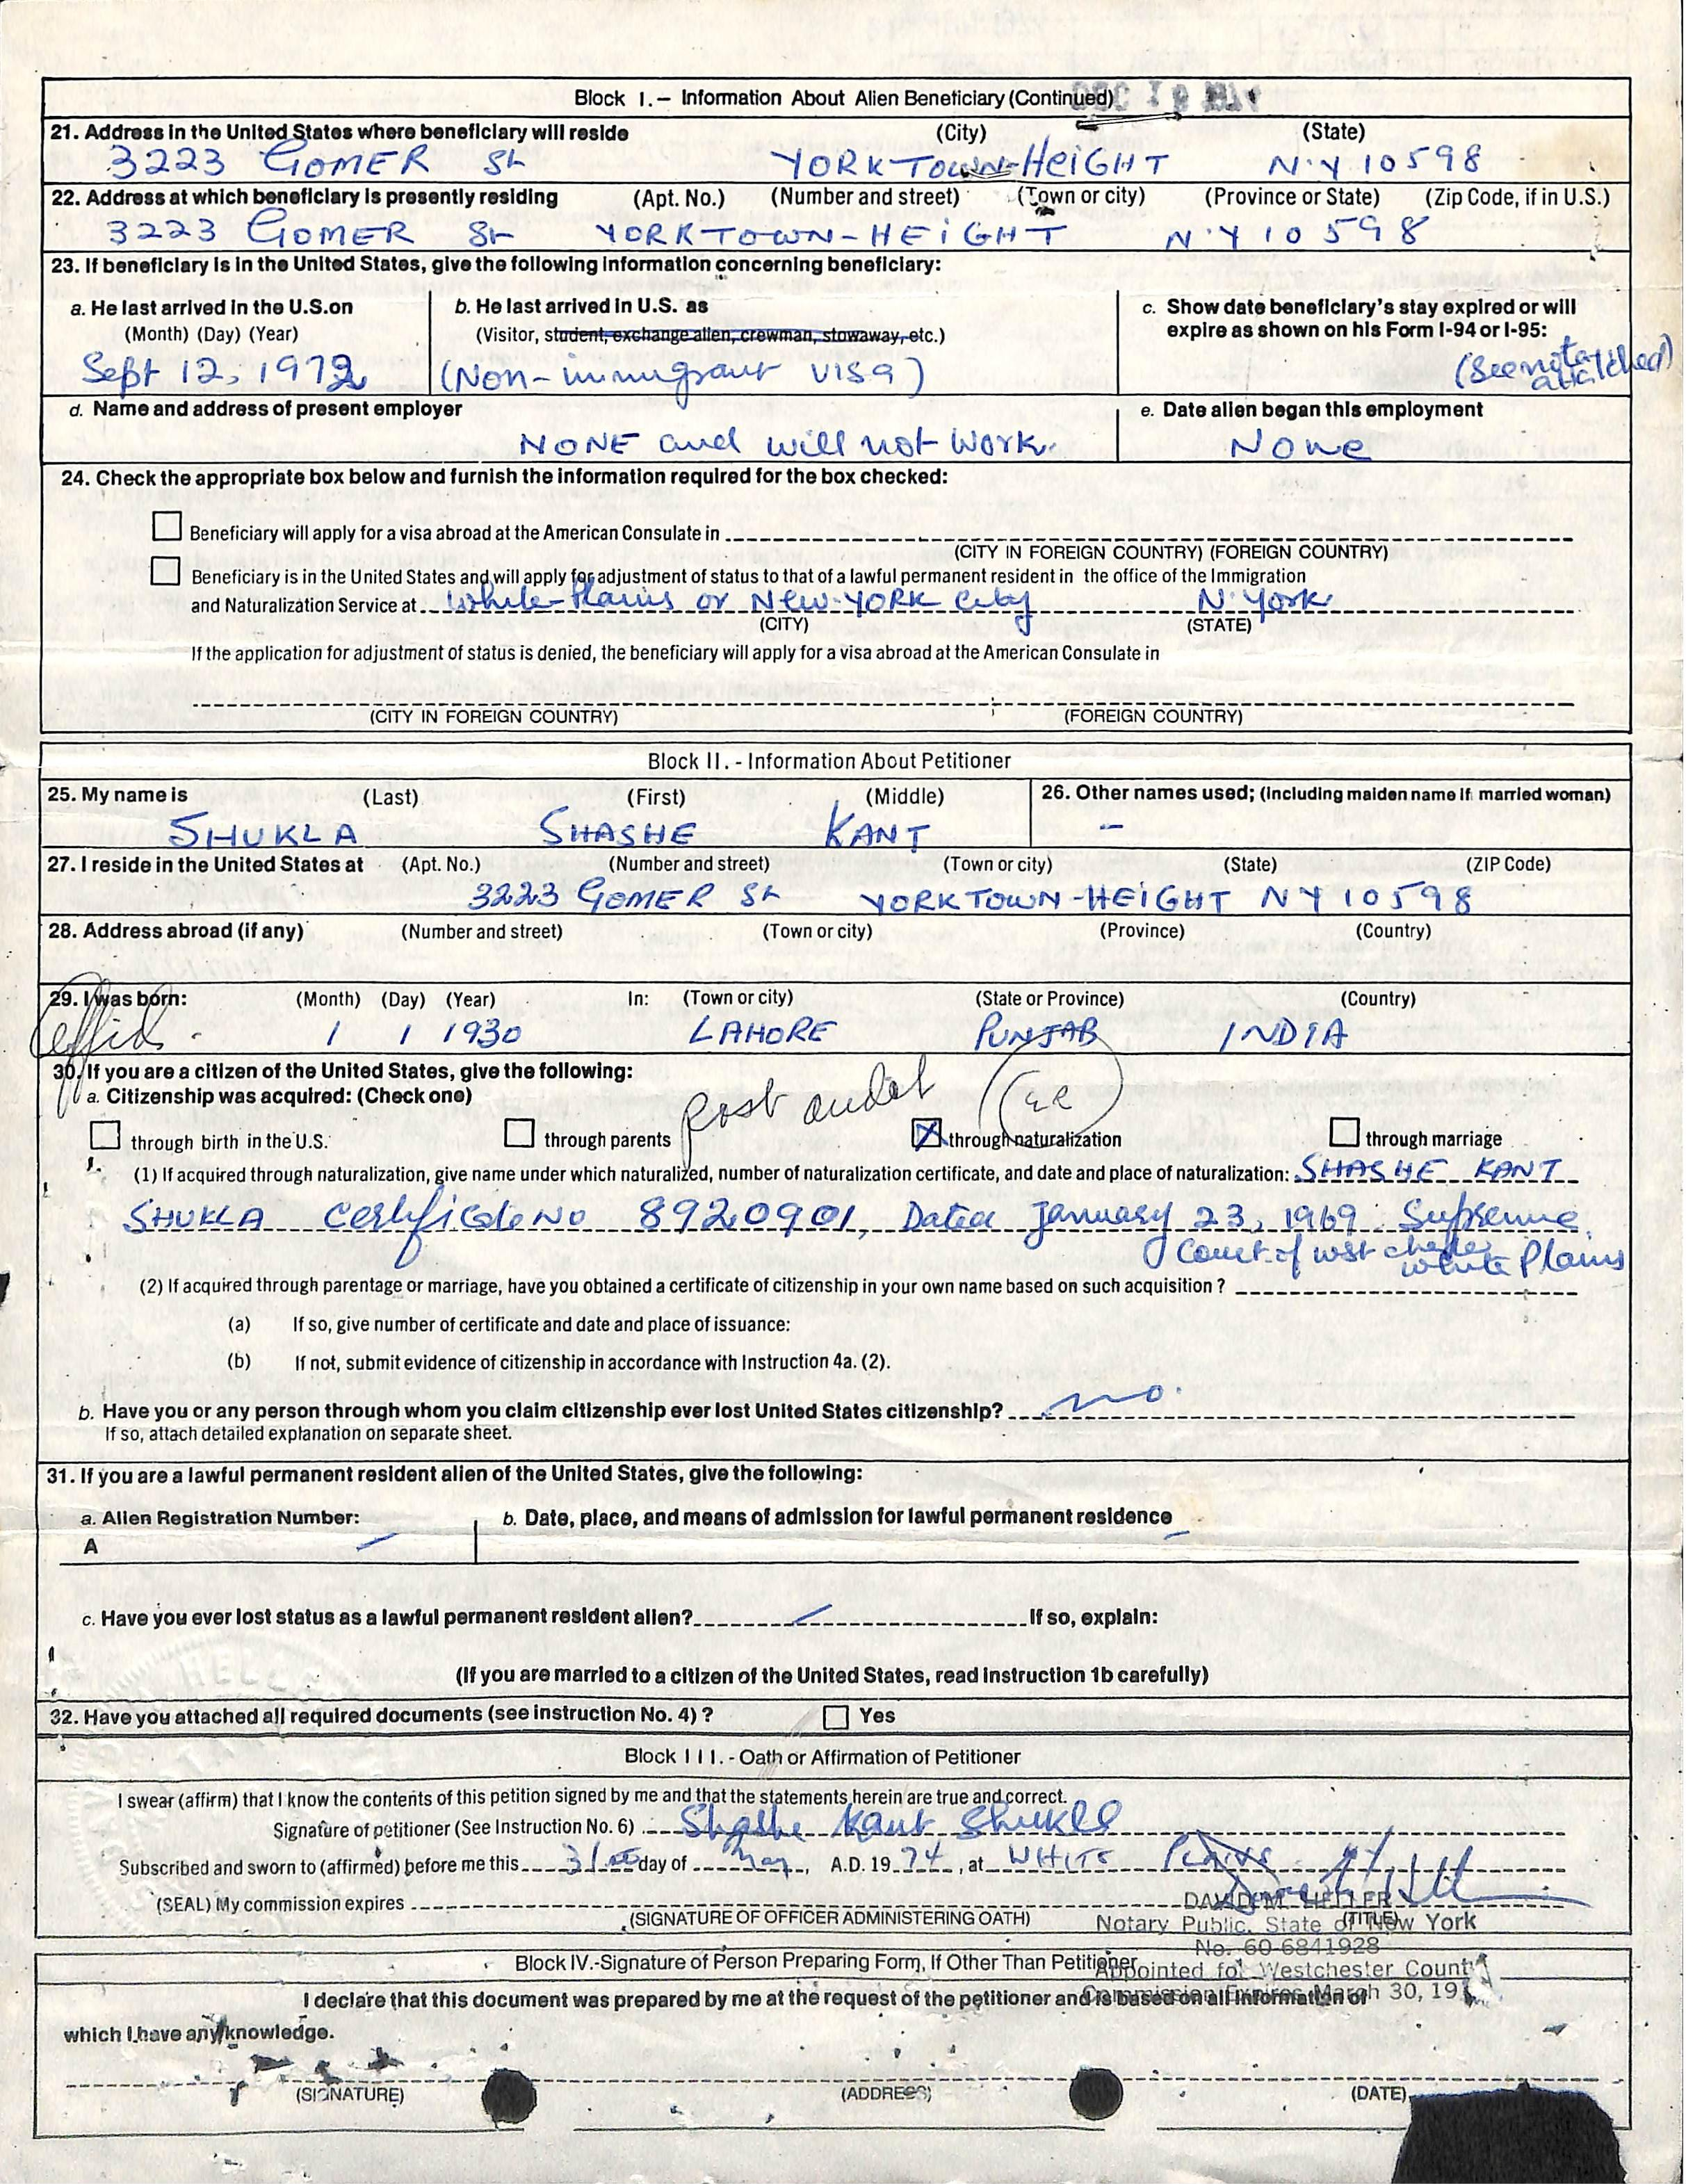 Block I. – Information About Alien Beneficiary (Continued)
21. Address in the United States where beneficiary will reside (City) (State)
3223 GOMER St YORKTOWN-HEIGHT N.Y 10598
22. Address at which beneficiary is presently residing (Apt. No.) (Number and street) (Town or city) (Province or State) (Zip Code, if in U.S.)
3223 GOMER St YORKTOWN-HEIGHT N.Y 10598
23. If beneficiary is in the United States, give the following information concerning beneficiary:
a. He last arrived in the U.S. on b. He last arrived in U.S. as c. Show date beneficiary's stay expired or will
(Month) (Day) (Year) (Visitor, student, exchange alien, crewman, stowaway, etc.) expire as shown on his Form I-94 or I-95:
Sept 12, 1972 (Non-immigrant visa) (See
d. Name and address of present employer e. Date alien began this employment
NONE and will not work. None
24. Check the appropriate box below and furnish the information required for the box checked:
Beneficiary will apply for a visa abroad at the American Consulate in
(CITY IN FOREIGN COUNTRY) (FOREIGN COUNTRY)
Beneficiary is in the United States and will apply for adjustment of status to that of a lawful permanent resident in the office of the Immigration
and Naturalization Service at White-Plains or New-YORK City N.York
(CITY) (STATE)
If the application for adjustment of status is denied, the beneficiary will apply for a visa abroad at the American Consulate in
(CITY IN FOREIGN COUNTRY) (FOREIGN COUNTRY)
Block II. - Information About Petitioner
25. My name is (Last) (First) (Middle) 26. Other names used; (including maiden name if married woman)
SHUKLA SHASHE KANT –
27. I reside in the United States at (Apt. No.) (Number and street) (Town or city) (State) (ZIP Code)
3223 GOMER St YORKTOWN-HEIGHT NY 10598
28. Address abroad (if any) (Number and street) (Town or city) (Province) (Country)
29. I was born: (Month) (Day) (Year) In: (Town or city) (State or Province) (Country)
1 1 1930 LAHORE PUNJAB INDIA
30. If you are a citizen of the United States, give the following:
a. Citizenship was acquired: (Check one)
post audit
through birth in the U.S. through parents X through naturalization through marriage
(1) If acquired through naturalization, give name under which naturalized, number of naturalization certificate, and date and place of naturalization: SHASHE KANT
SHUKLA Certificate No 8920901, Dated January 23, 1969 Supreme
Court of west chester white Plains
(2) If acquired through parentage or marriage, have you obtained a certificate of citizenship in your own name based on such acquisition ?
(a) If so, give number of certificate and date and place of issuance:
(b) If not, submit evidence of citizenship in accordance with Instruction 4a. (2).
b. Have you or any person through whom you claim citizenship ever lost United States citizenship? no.
If so, attach detailed explanation on separate sheet.
31. If you are a lawful permanent resident alien of the United States, give the following:
a. Alien Registration Number: b. Date, place, and means of admission for lawful permanent residence
A
c. Have you ever lost status as a lawful permanent resident alien? If so, explain:
(If you are married to a citizen of the United States, read instruction 1b carefully)
32. Have you attached all required documents (see instruction No. 4) ? Yes
Block III. - Oath or Affirmation of Petitioner
I swear (affirm) that I know the contents of this petition signed by me and that the statements herein are true and correct.
Signature of petitioner (See Instruction No. 6) Shashe Kant Shukla
Subscribed and sworn to (affirmed) before me this 31st day of May, A.D. 19 74, at WHITE Plains
(SEAL) My commission expires DAVID M. HELLER
(SIGNATURE OF OFFICER ADMINISTERING OATH) (TITLE)
Notary Public, State of New York
No. 60-6841928
Block IV.-Signature of Person Preparing Form, If Other Than Petitioner
Appointed for Westchester County
Commission Expires March 30, 19
I declare that this document was prepared by me at the request of the petitioner and is based on all information of
which I have any knowledge.
(SIGNATURE) (ADDRESS) (DATE)